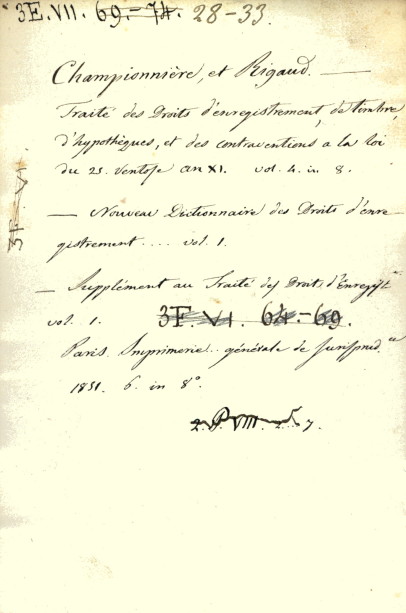 3E.VII. 69-74. 28-33.
Championnière, et Rigaud. —
Traité des Droits d'enregistrement, de timbre,
d'hypothèques, et des contraventions a la loi
du 25. Ventose an XI. vol. 4. in 8.
3F.VI.
— Nouveau Dictionnaire des Droits d'enre-
gistrement.... vol. 1.
— Supplément au Traité des Droits d'Enregist
vol. 1. 3F. VI. 64.-69.
Paris. Imprimerie.. générale de Jurisprud.
1851. 6. in 8°.
2. P. VIII. 7.